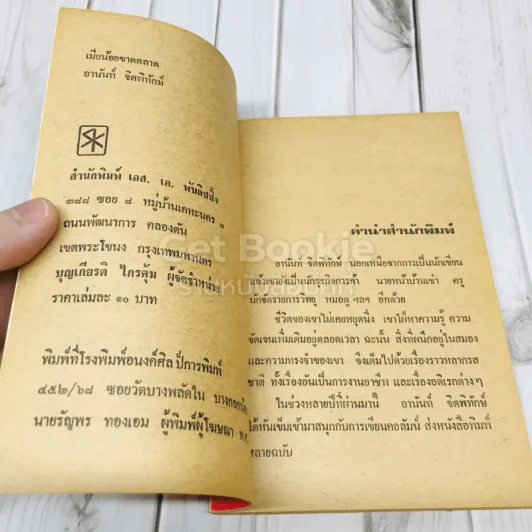 เมียน้อยขาดตลาด
อานันท์ จิตพิทักษ์
SK
สำนักพิมพ์ เอส. เค. พับลิชชิ่ง
๓๘๘ ซอย ๘ หมู่บ้านเคหะนคร ๓
ถนนพัฒนาการ คลองตัน
เขตพระโขนง กรุงเทพมหานคร
บุญเกียรติ ไกรคุ้ม ผู้จัดจำหน่าย
ราคาเล่มละ ๑๐ บาท
พิมพ์ที่โรงพิมพ์อนงค์ศิลป์การพิมพ์
๔๕๒/๖๘ ซอยวัดบางพลัดใน บางกอกน้อย
นายรัญพร ทองเอม ผู้พิมพ์ผู้โฆษณา พ.ศ.
คำนำสำนักพิมพ์
อานันท์ จิตพิทักษ์ นอกเหนือจากการเป็นนักเขียน
แล้วเขายังเป็นนักธุรกิจการค้า นายหน้าบ้านเช่า ครู
นักจัดรายการวิทยุ หมอดู ฯลฯ อีกด้วย
ชีวิตของเขาไม่เคยหยุดนิ่ง เขาใฝ่หาความรู้ ความ
จัดเจนเพิ่มเติมอยู่ตลอดเวลา ฉะนั้น สิ่งที่ผนึกอยู่ในสมอง
และความทรงจำของเขา จึงเต็มไปด้วยเรื่องราวหลากรส
ชาติ ทั้งเรื่องอันเป็นการงานอาชีพ และเรื่องอดิเรกต่างๆ
ในช่วงหลายปีที่ผ่านมานี้ อานันท์ จิตพิทักษ์
ได้หันเข็มเข้ามาสนุกกับการเขียนคอลัมน์ ส่งหนังสือพิมพ์
หลายฉบับ
Get Bookie